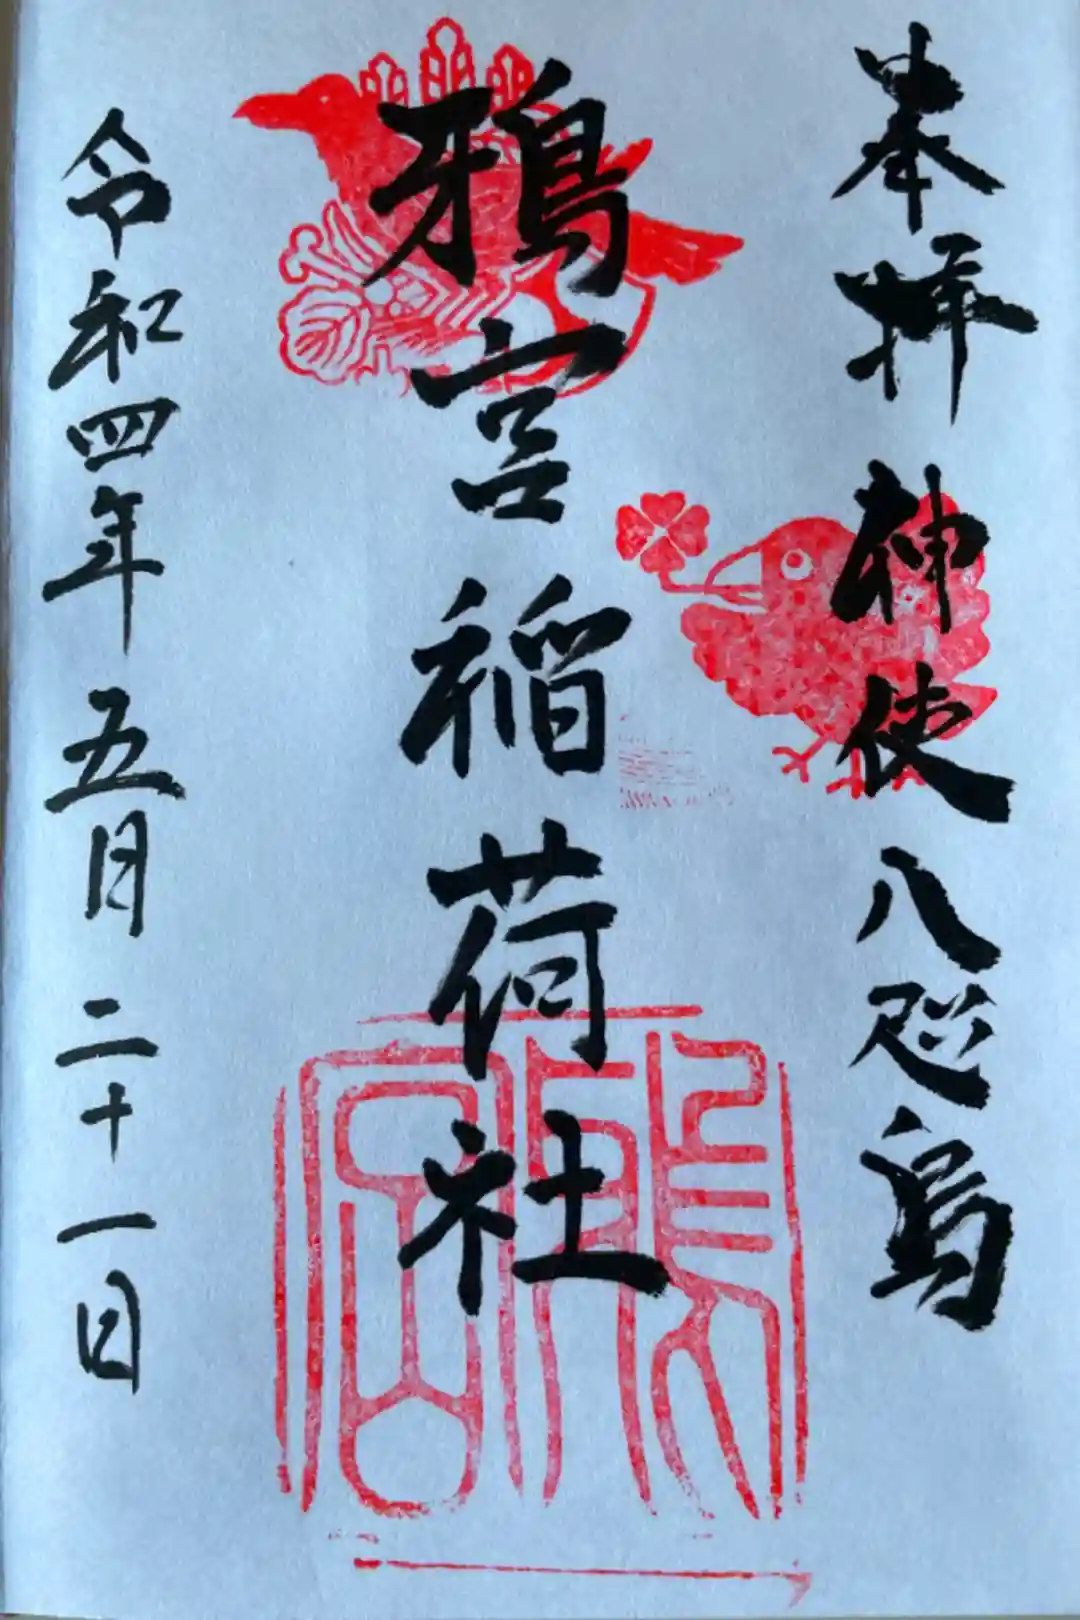 奉拝 神使 八咫烏
鴉宮稲荷社
令和四年 五月二十一日